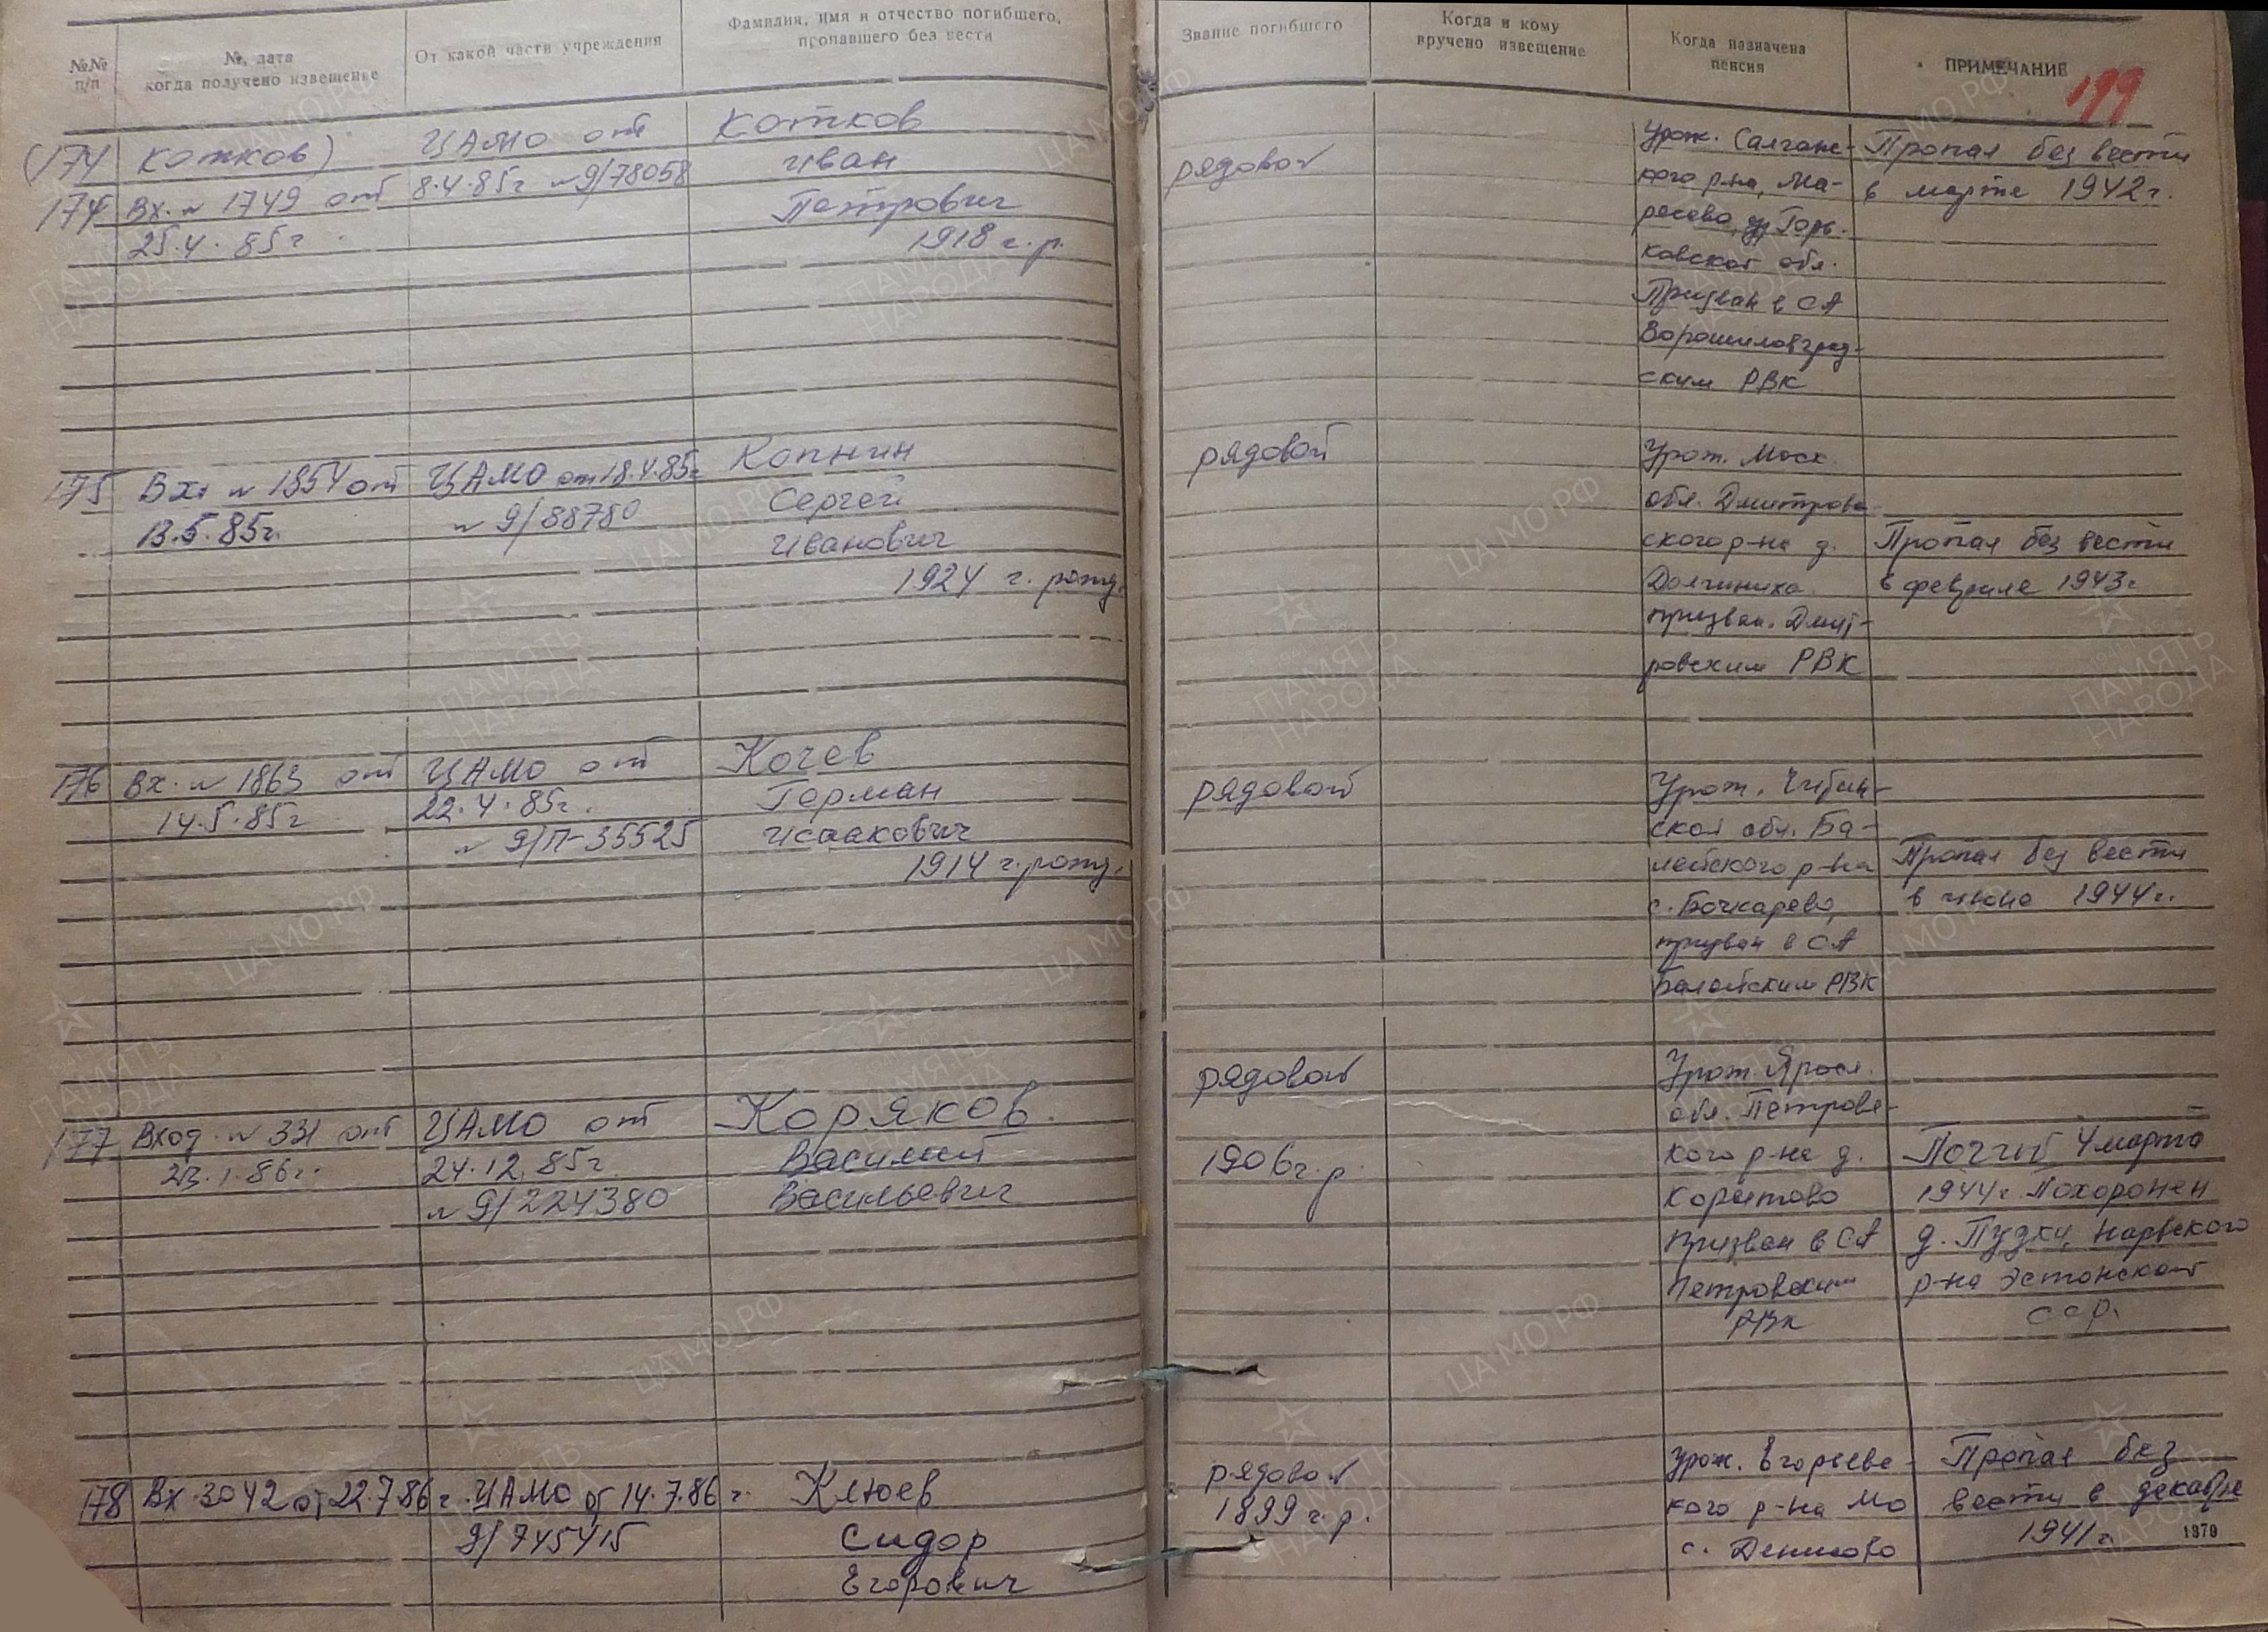 №№ п/п
№, дата когда получено извещение
От какой части учреждения
Фамилия, имя и отчество погибшего, пропавшего без вести
Звание погибшего
Когда и кому вручено извещение
Когда назначена пенсия
ПРИМЕЧАНИЕ
199
(174 Котков)
174 Вх. № 1749 от
25.4.85г
ЦАМО от
8.4.85г №9/78058
Котков
Иван
Петрович
1918 г.р.
рядовой
Урож. Салганс-
кого р-на, Ма-
ресево, Горь-
ковской обл.
Призван в СА
Ворошиловград-
ским РВК
Пропал без вести
в марте 1942г.
175 Вх. № 1854 от
13.5.85г.
ЦАМО от 18.4.85г
№ 9/88780
Копнин
Сергей
Иванович
1924 г. рожд.
рядовой
Урож. Моск.
обл. Дмитровс
ского р-на д.
Долгиниха
призван. Дмит-
ровским РВК
Пропал без вести
в феврале 1943г
176 Вх. № 1863 от
14.5.85г
ЦАМО от
22.4.85г.
№ 9/П-35525
Кочев
Герман
Исаакович
1914 г. рожд.
рядовой
Урож. Читин-
ской обл. Ба-
лейского р-на
с. Бочкарево,
призван в СА
Балейским РВК
Пропал без вести
в июне 1944г.
177 Вход. № 331 от
23.1.86г.
ЦАМО от
24.12.85г
№ 9/224380
Коряков
Василий
Васильевич
рядовой
1906г.р.
Урож. Яросл.
обл. Петровс-
кого р-на д.
Корытово
Призван в СА
Петровским
РВК
Погиб 4 марта
1944г. Похоронен
д. Пудки, Нарвского
р-на Эстонской
ССР.
178 Вх. 3042 от 22.7.86г.
ЦАМО от 14.7.86г.
9/745415
Клюев
Сидор
Егорович
рядовой
1899 г.р.
Урож. Егорьевс-
кого р-на МО
с. Денисово
Пропал без
вести в декабре
1941г.
1979
ЦА МО РФ
ПАМЯТЬ НАРОДА